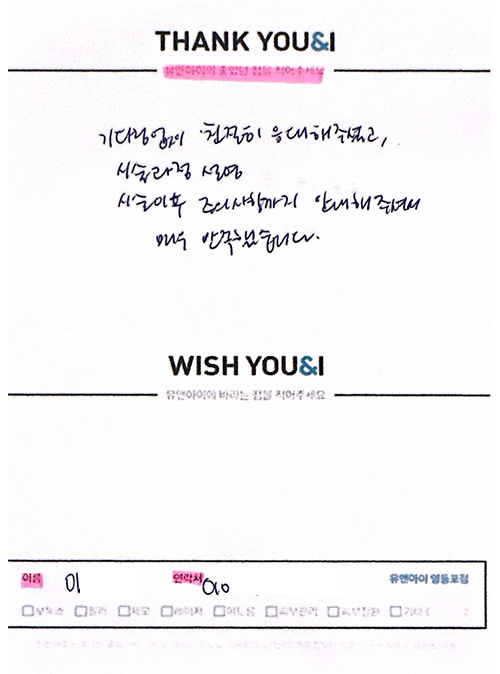 THANK YOU&I
유앤아이의 좋았던 점을 적어주세요
기다림 없이 친절히 응대해주셨고,
시술과정 설명
시술이후 주의사항까지 안내해주셔서
매우 만족했습니다.
WISH YOU&I
유앤아이에 바라는 점을 적어주세요
이름 이 연락처 010 유앤아이 영등포점
보톡스 필러 제모 레이저 여드름 피부관리 피부질환 기타 (